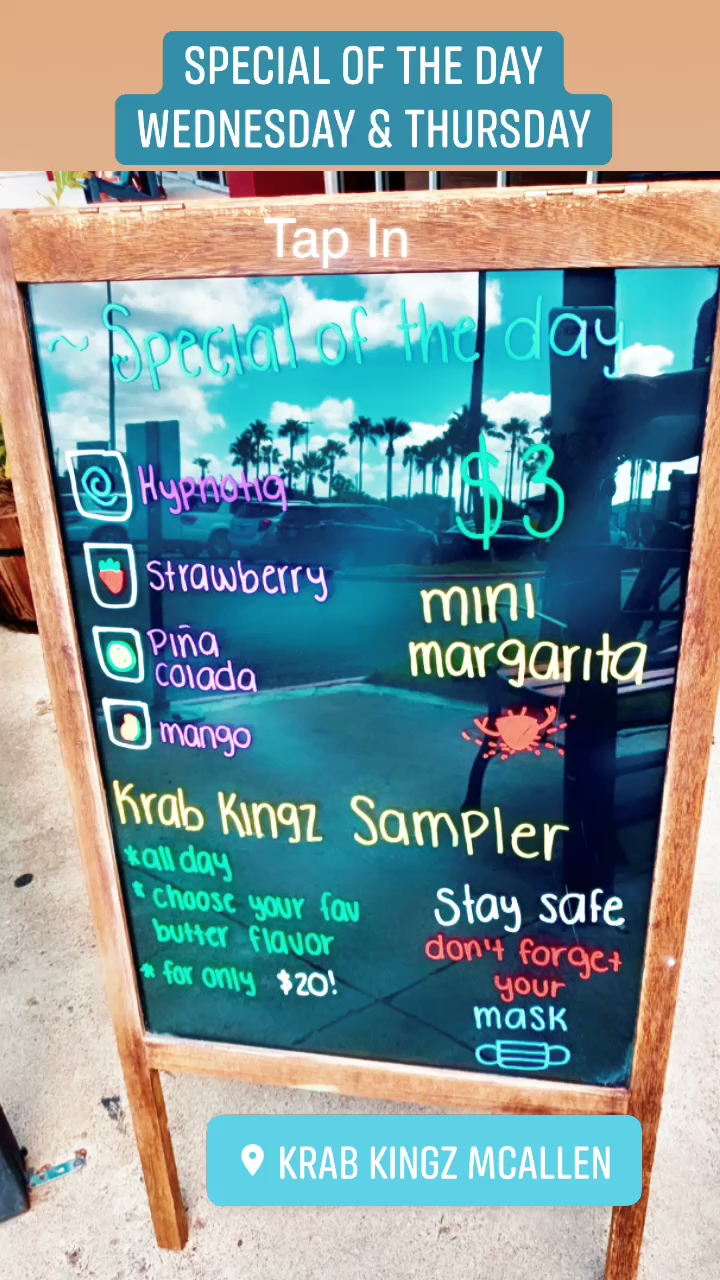 SPECIAL OF THE DAY
WEDNESDAY & THURSDAY
Tap In
~ Special of the day
Hypnotiq
$3
Strawberry
mini
margarita
Piña
colada
mango
Krab Kingz Sampler
*all day
* choose your fav
butter flavor
* for only $20!
Stay safe
don't forget
your
mask
KRAB KINGZ MCALLEN